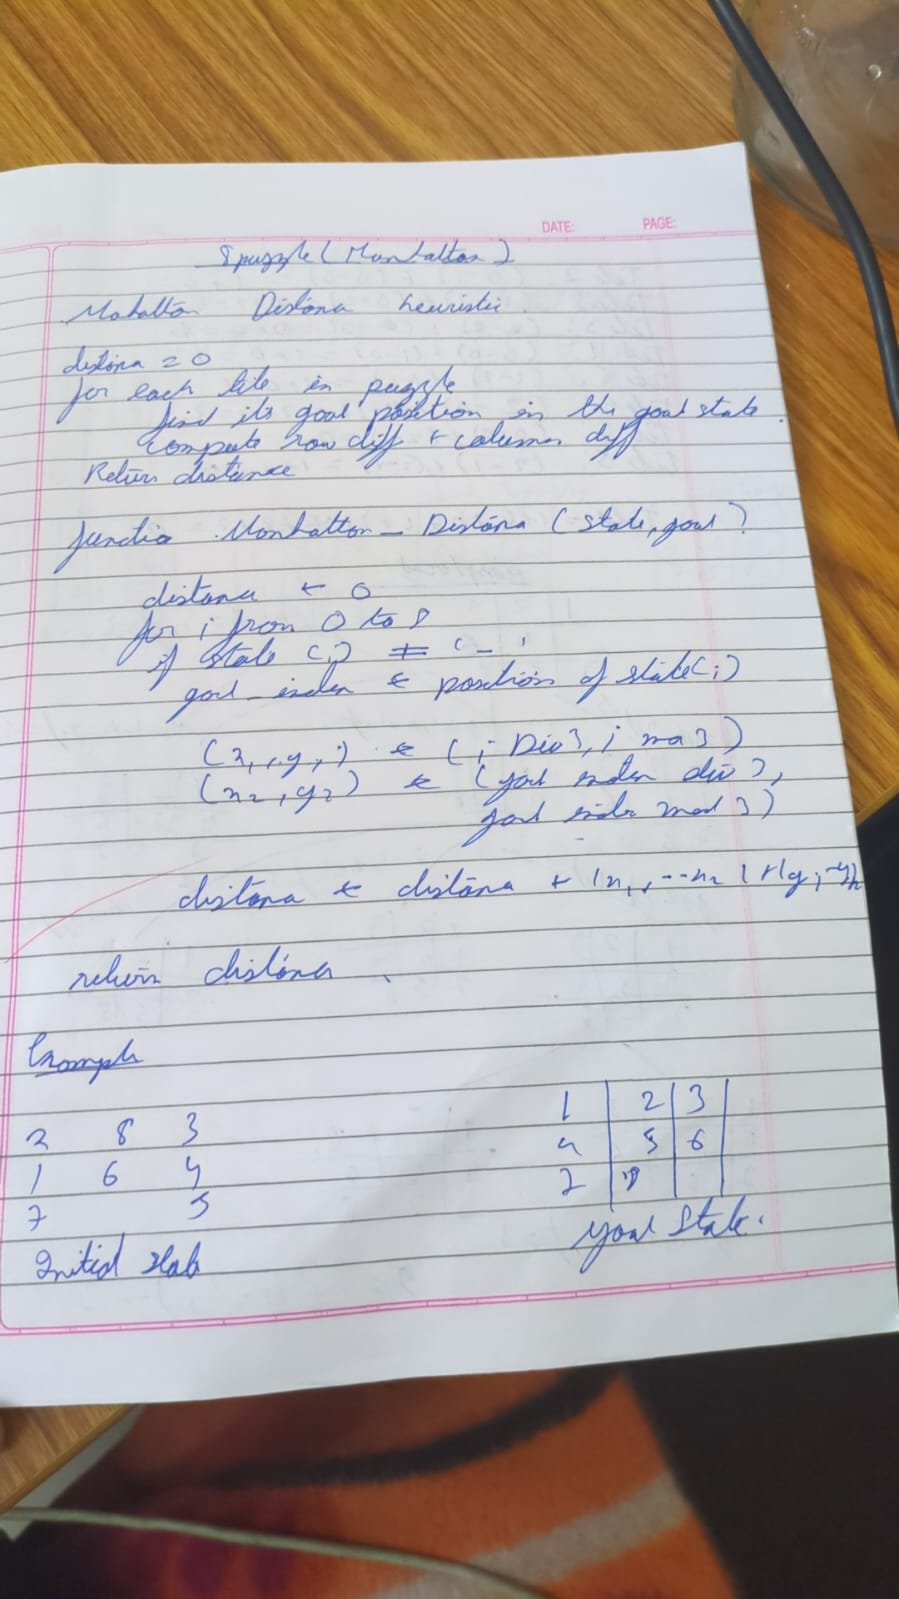 DATE: PAGE:
8puzzle (Manhattan)
Mahattan Distana heuristic
distina = 0
for each tile in puzzle
find its goal position in the goal state.
compute row diff + column diff
Return distance
function Manhattan_Distana (state, goal)
distana ← 0
for i from 0 to 8
if state (i) ≠ '_'
goal_index ← position of state(i)
(x1, y1) ← (i Div 3, i mod 3)
(x2, y2) ← (goal index div 3,
goal index mod 3)
distana ← distana + |x1 -- x2| + |y1 - y2|
return distana
Example
2 8 3
1 6 4
7 5
Initial state
1 2 3
4 5 6
7 8
goal state.